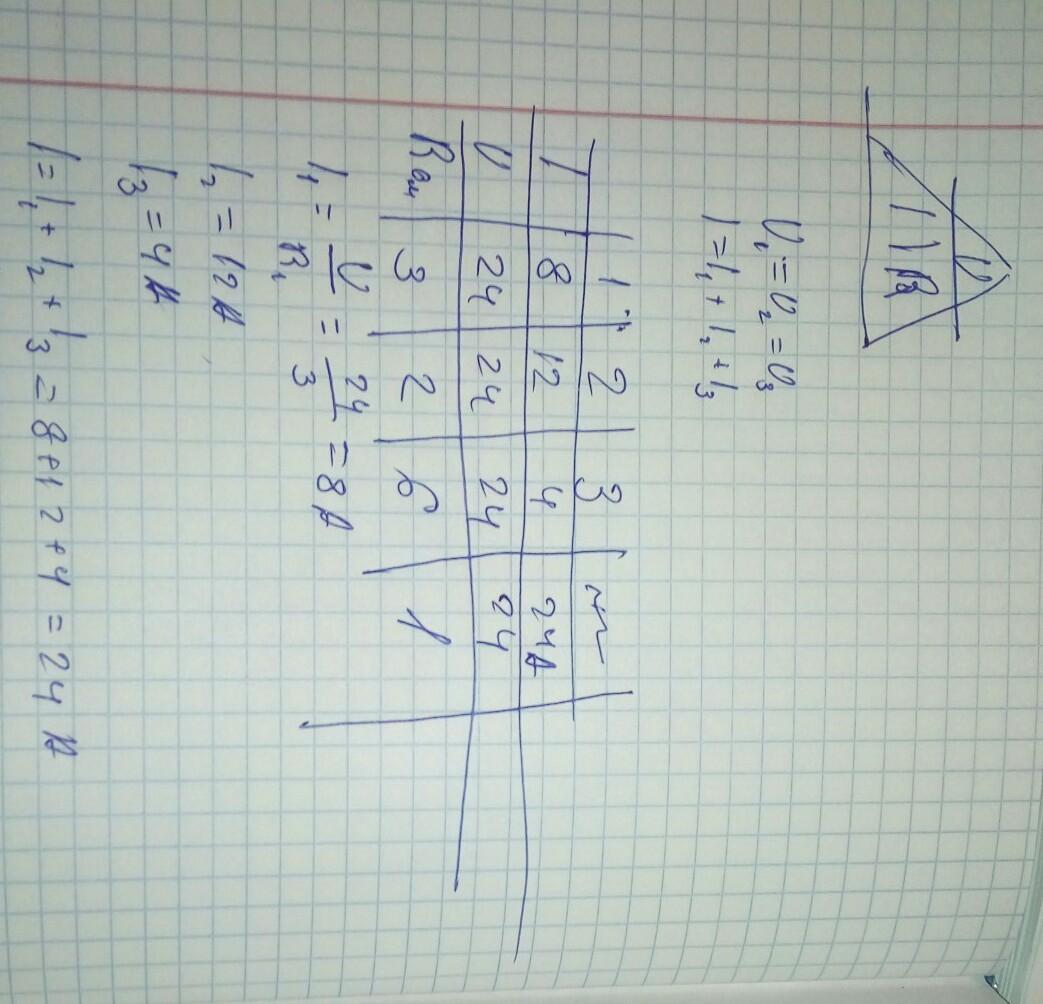 U
I | R
U₁ = U₂ = U₃
I = I₁ + I₂ + I₃
1 2 3
I 8 12 4 24A
U 24 24 24 24
R Ом 3 2 6 1
I₁ = U/R₁ = 24/3 = 8A
I₂ = 12A
I₃ = 4A
I = I₁ + I₂ + I₃ = 8+12+4 = 24 A